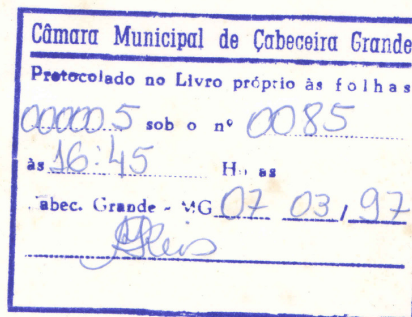 Câmara Municipal de Çabeceira Grande
Protocolado no Livro próprio às folhas
000005 sob o nº 0085
às 16:45 H as
abec. Grande - MG 07 03, 97